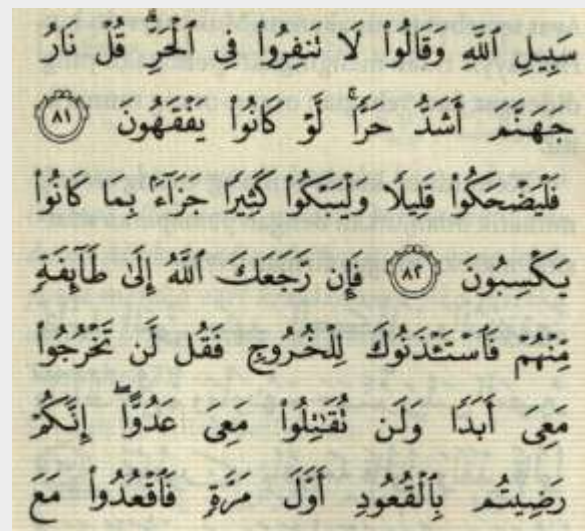 سَبِيلِ ٱللَّهِ وَقَالُوا۟ لَا تَنفِرُوا۟ فِى ٱلْحَرِّ ۗ قُلْ نَارُ
جَهَنَّمَ أَشَدُّ حَرًّا ۚ لَّوْ كَانُوا۟ يَفْقَهُونَ ٨١
فَلْيَضْحَكُوا۟ قَلِيلًا وَلْيَبْكُوا۟ كَثِيرًا جَزَآءًۢ بِمَا كَانُوا۟
يَكْسِبُونَ ٨٢ فَإِن رَّجَعَكَ ٱللَّهُ إِلَىٰ طَآئِفَةٍ
مِّنْهُمْ فَٱسْتَـْٔذَنُوكَ لِلْخُرُوجِ فَقُل لَّن تَخْرُجُوا۟
مَعِىَ أَبَدًا وَلَن تُقَـٰتِلُوا۟ مَعِىَ عَدُوًّا ۖ إِنَّكُمْ
رَضِيتُم بِٱلْقُعُودِ أَوَّلَ مَرَّةٍ فَٱقْعُدُوا۟ مَعَ